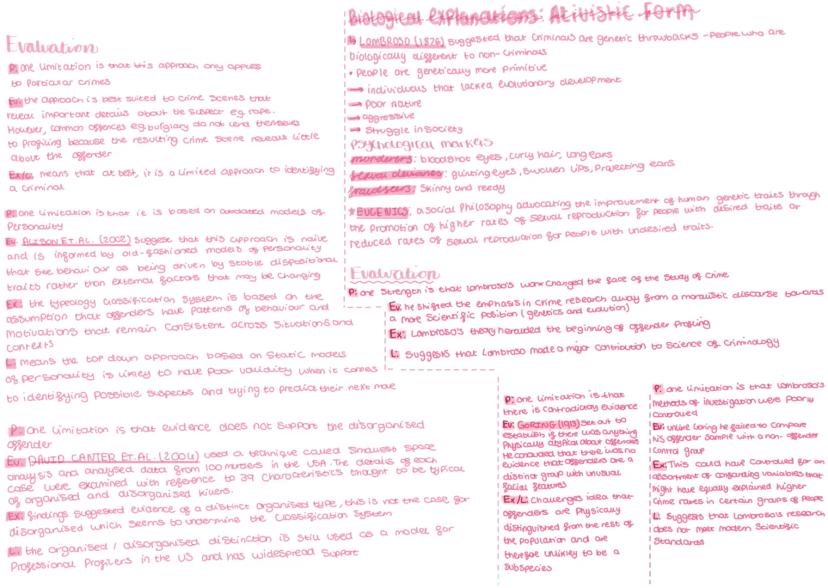 Evaluation
P: one limitation is that this approach only applies
to particular crimes
Ev: the approach is best suited to crime scenes that
reveal important details about the suspect eg. rape.
However, common offences eg. burglary do not lend themselves
to profiling because the resulting crime scene reveals little
about the offender
Ex/L: means that at best, it is a limited approach to identifying
a criminal
P: one limitation is that it is based on outdated models of
Personality
Ev: ALISON ET. AL. (2002) suggest that this approach is naive
and is informed by old-fashioned models of personality
that see behaviour as being driven by stable dispositional
traits rather than external factors that may be changing
Ex: the typology classification system is based on the
assumption that offenders have patterns of behaviour and
motivations that remain consistent across situations and
contexts
L: means the top down approach based on static models
of personality is likely to have poor validity when it comes
to identifying possible suspects and trying to predict their next move
P: one limitation is that evidence does not support the disorganised
offender
Ev: DAVID CANTER ET. AL. (2004) used a technique called smallest space
analysis and analysed data from 100 murders in the USA. The details of each
case were examined with reference to 39 characteristics thought to be typical
of organised and disorganised killers.
Ex: findings suggested evidence of a distinct organised type, this is not the case for
disorganised which seems to undermine the classification system
L: the organised / disorganised distinction is still used as a model for
Professional Profilers in the US and has widespread support
Biological Explanations: Ativistic Form
LOMBROSO (1876) suggested that criminals are genetic throwbacks - people who are
biologically different to non-criminals
• People are genetically more primitive
→ individuals that lacked evolutionary development
→ Poor nature
→ aggressive
→ Struggle in society
Psychological markers
murderers: bloodshot eyes, curly hair, long ears
Sexual deviance: glinting eyes, swollen lips, projecting ears
fraudsters: Skinny and reedy
* EUGENICS, a social philosophy advocating the improvement of human genetic traits through
the promotion of higher rates of sexual reproduction for people with desired traits or
reduced rates of sexual reproduction for people with undesired traits.
Evaluation
P: one strength is that lombroso's work changed the face of the study of crime
Ev: he shifted the emphasis in crime research away from a moralistic discourse towards
a more scientific position (genetics and evolution)
Ex: Lombroso's theory heralded the beginning of offender profiling
L: Suggests that Lombroso made a major contribution to science of criminology
P: one limitation is that
there is contradictory evidence
Ev: GORING (1913) set out to
establish if there was anything
physically atypical about offenders
He concluded that there was no
evidence that offenders are a
distinct group with unusual
facial features
Ex/L: Challenges idea that
offenders are physically
distinguished from the rest of
the population and are
therefore unlikely to be a
subspecies
P: one limitation is that lombroso's
methods of investigation were poorly
controlled
Ev: unlike Goring he failed to compare
his offender sample with a non-offender
control group
Ex: This could have controlled for an
assortment of confounding variables that
might have equally explained higher
crime rates in certain groups of people
L: Suggests that lombroso's research
does not meet modern scientific
standards